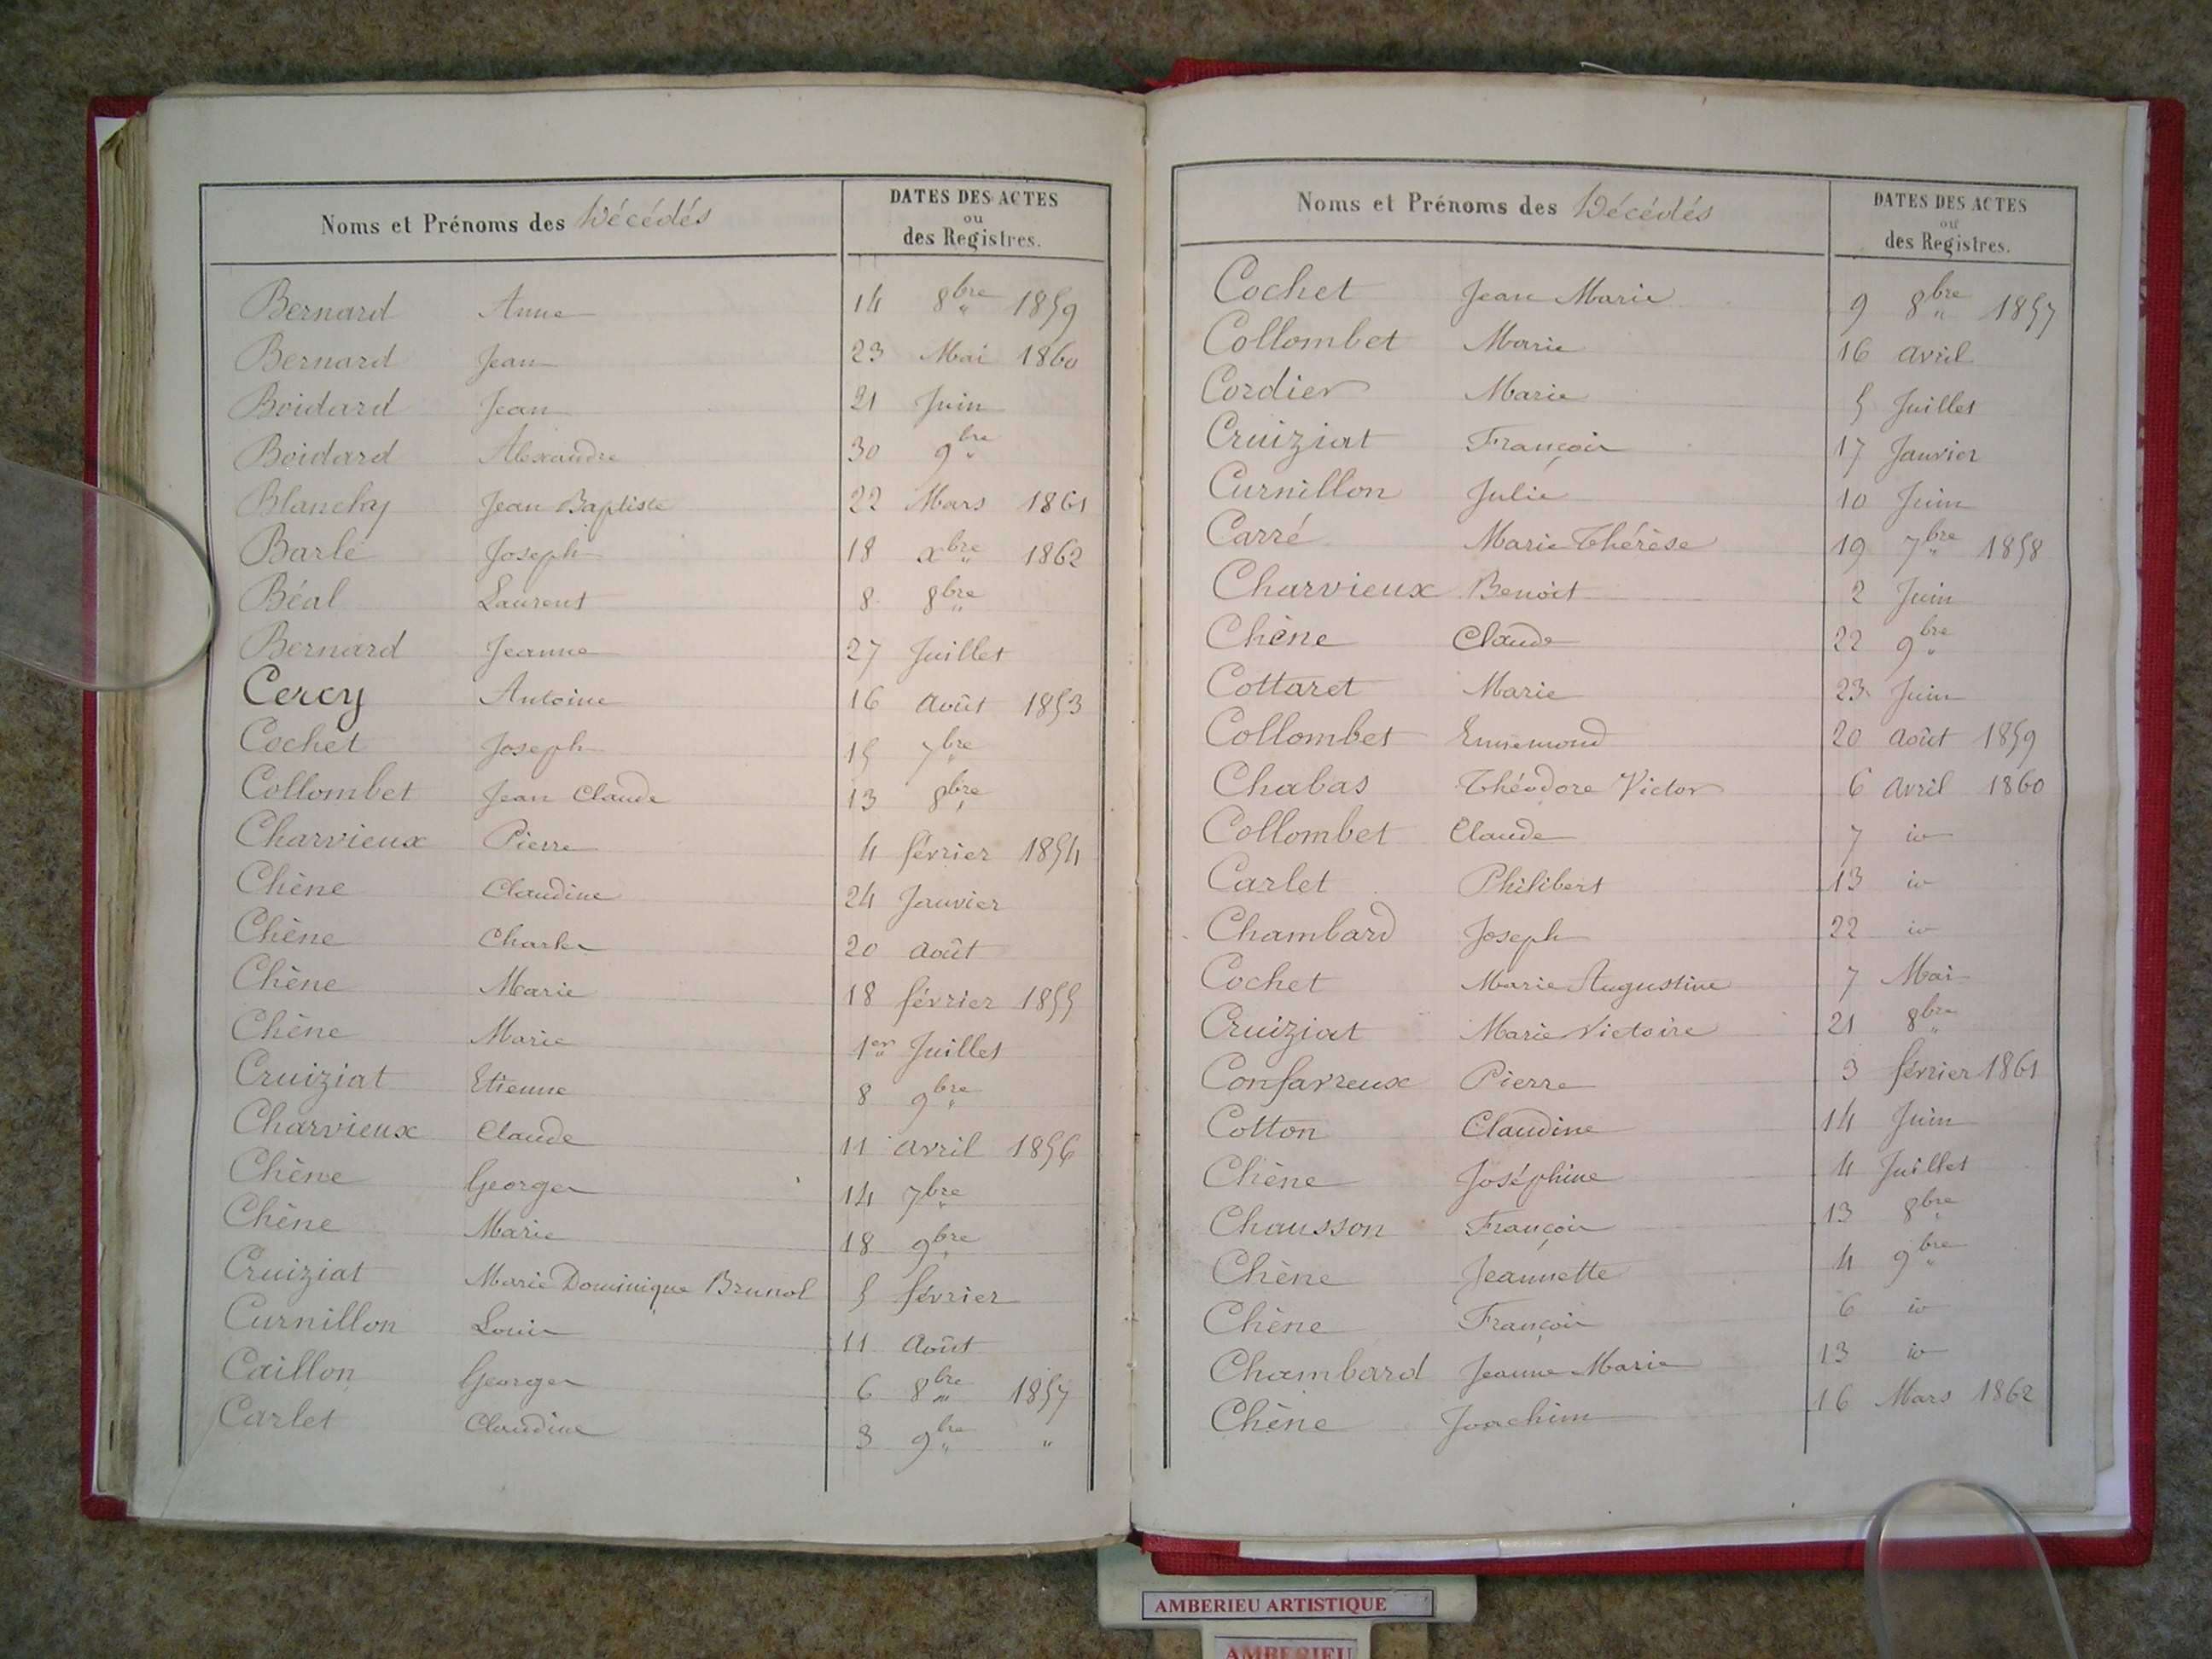 Noms et Prénoms des Décédés
DATES DES ACTES
ou
des Registres.
Bernard Anne 14 8bre 1859
Bernard Jean 23 Mai 1860
Boidard Jean 21 Juin
Boidard Alexandre 30 9bre
Blanchy Jean Baptiste 22 Mars 1861
Barlé Joseph 18 xbre 1862
Béal Laurent 8 8bre
Bernard Jeanne 27 Juillet
Cercy Antoine 16 Août 1853
Cochet Joseph 15 7bre
Collombet Jean Claude 13 8bre
Charvieux Pierre 4 février 1854
Chêne Claudine 24 Janvier
Chêne Charles 20 Août
Chêne Marie 18 février 1855
Chêne Marie 1er Juillet
Cruiziat Etienne 8 9bre
Charvieux Claude 11 avril 1856
Chêne Georges 14 7bre
Chêne Marie 18 9bre
Cruiziat Marie Dominique Brunot 5 février
Curnillon Louis 11 Août
Caillon Georges 6 8bre 1857
Carlet Claudine 3 9bre "
Noms et Prénoms des Décédés
DATES DES ACTES
ou
des Registres.
Cochet Jean Marie 9 8bre 1857
Collombet Marie 16 avril
Cordier Marie 5 Juillet
Cruiziat François 17 Janvier
Curnillon Julie 10 Juin
Carré Marie Thérèse 19 7bre 1858
Charvieux Benoit 2 Juin
Chêne Claude 22 9bre
Cottaret Marie 23 Juin
Collombet Ennemond 20 Août 1859
Chabas Théodore Victor 6 Avril 1860
Collombet Claude 7 id
Carlet Philibert 13 id
Chambard Joseph 22 id
Cochet Marie Augustine 7 Mai
Cruiziat Marie Victoire 21 8bre
Confavreux Pierre 3 février 1861
Cotton Claudine 14 Juin
Chêne Joséphine 4 Juillet
Chausson François 13 8bre
Chêne Jeannette 4 9bre
Chêne François 6 id
Chambard Jeanne Marie 13 id
Chêne Joachim 16 Mars 1862
AMBERIEU ARTISTIQUE
AMBERIEU